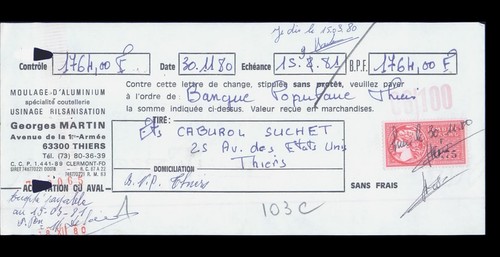 Je dis le 15.03.80
Contrôle 1764,00 F Date 30.11.80 Echéance 15.2.81 B.P.F. 1764,00 F
MOULAGE-D'ALUMINIUM
spécialité coutellerie
USINAGE RILSANISATION
Georges MARTIN
Avenue de la 1re Armée
63300 THIERS
Tél. (73) 80-36-39
C.C.P. 1.441-89 CLERMONT-FD
Contre cette lettre de change, stipulée sans protêt, veuillez payer
à l'ordre de : Banque Populaire Thiers
la somme indiquée ci-dessus. Valeur reçue en marchandises.
TIRÉ :
Ets CABUROL SUCHET
25 Av. des Etats Unis
Thiers
DOMICILIATION
B.P.P. Thiers
SANS FRAIS
Thiers le 30.11.80
0,75
ACCEPTATION OU AVAL
payable
au 15-03-81
103C